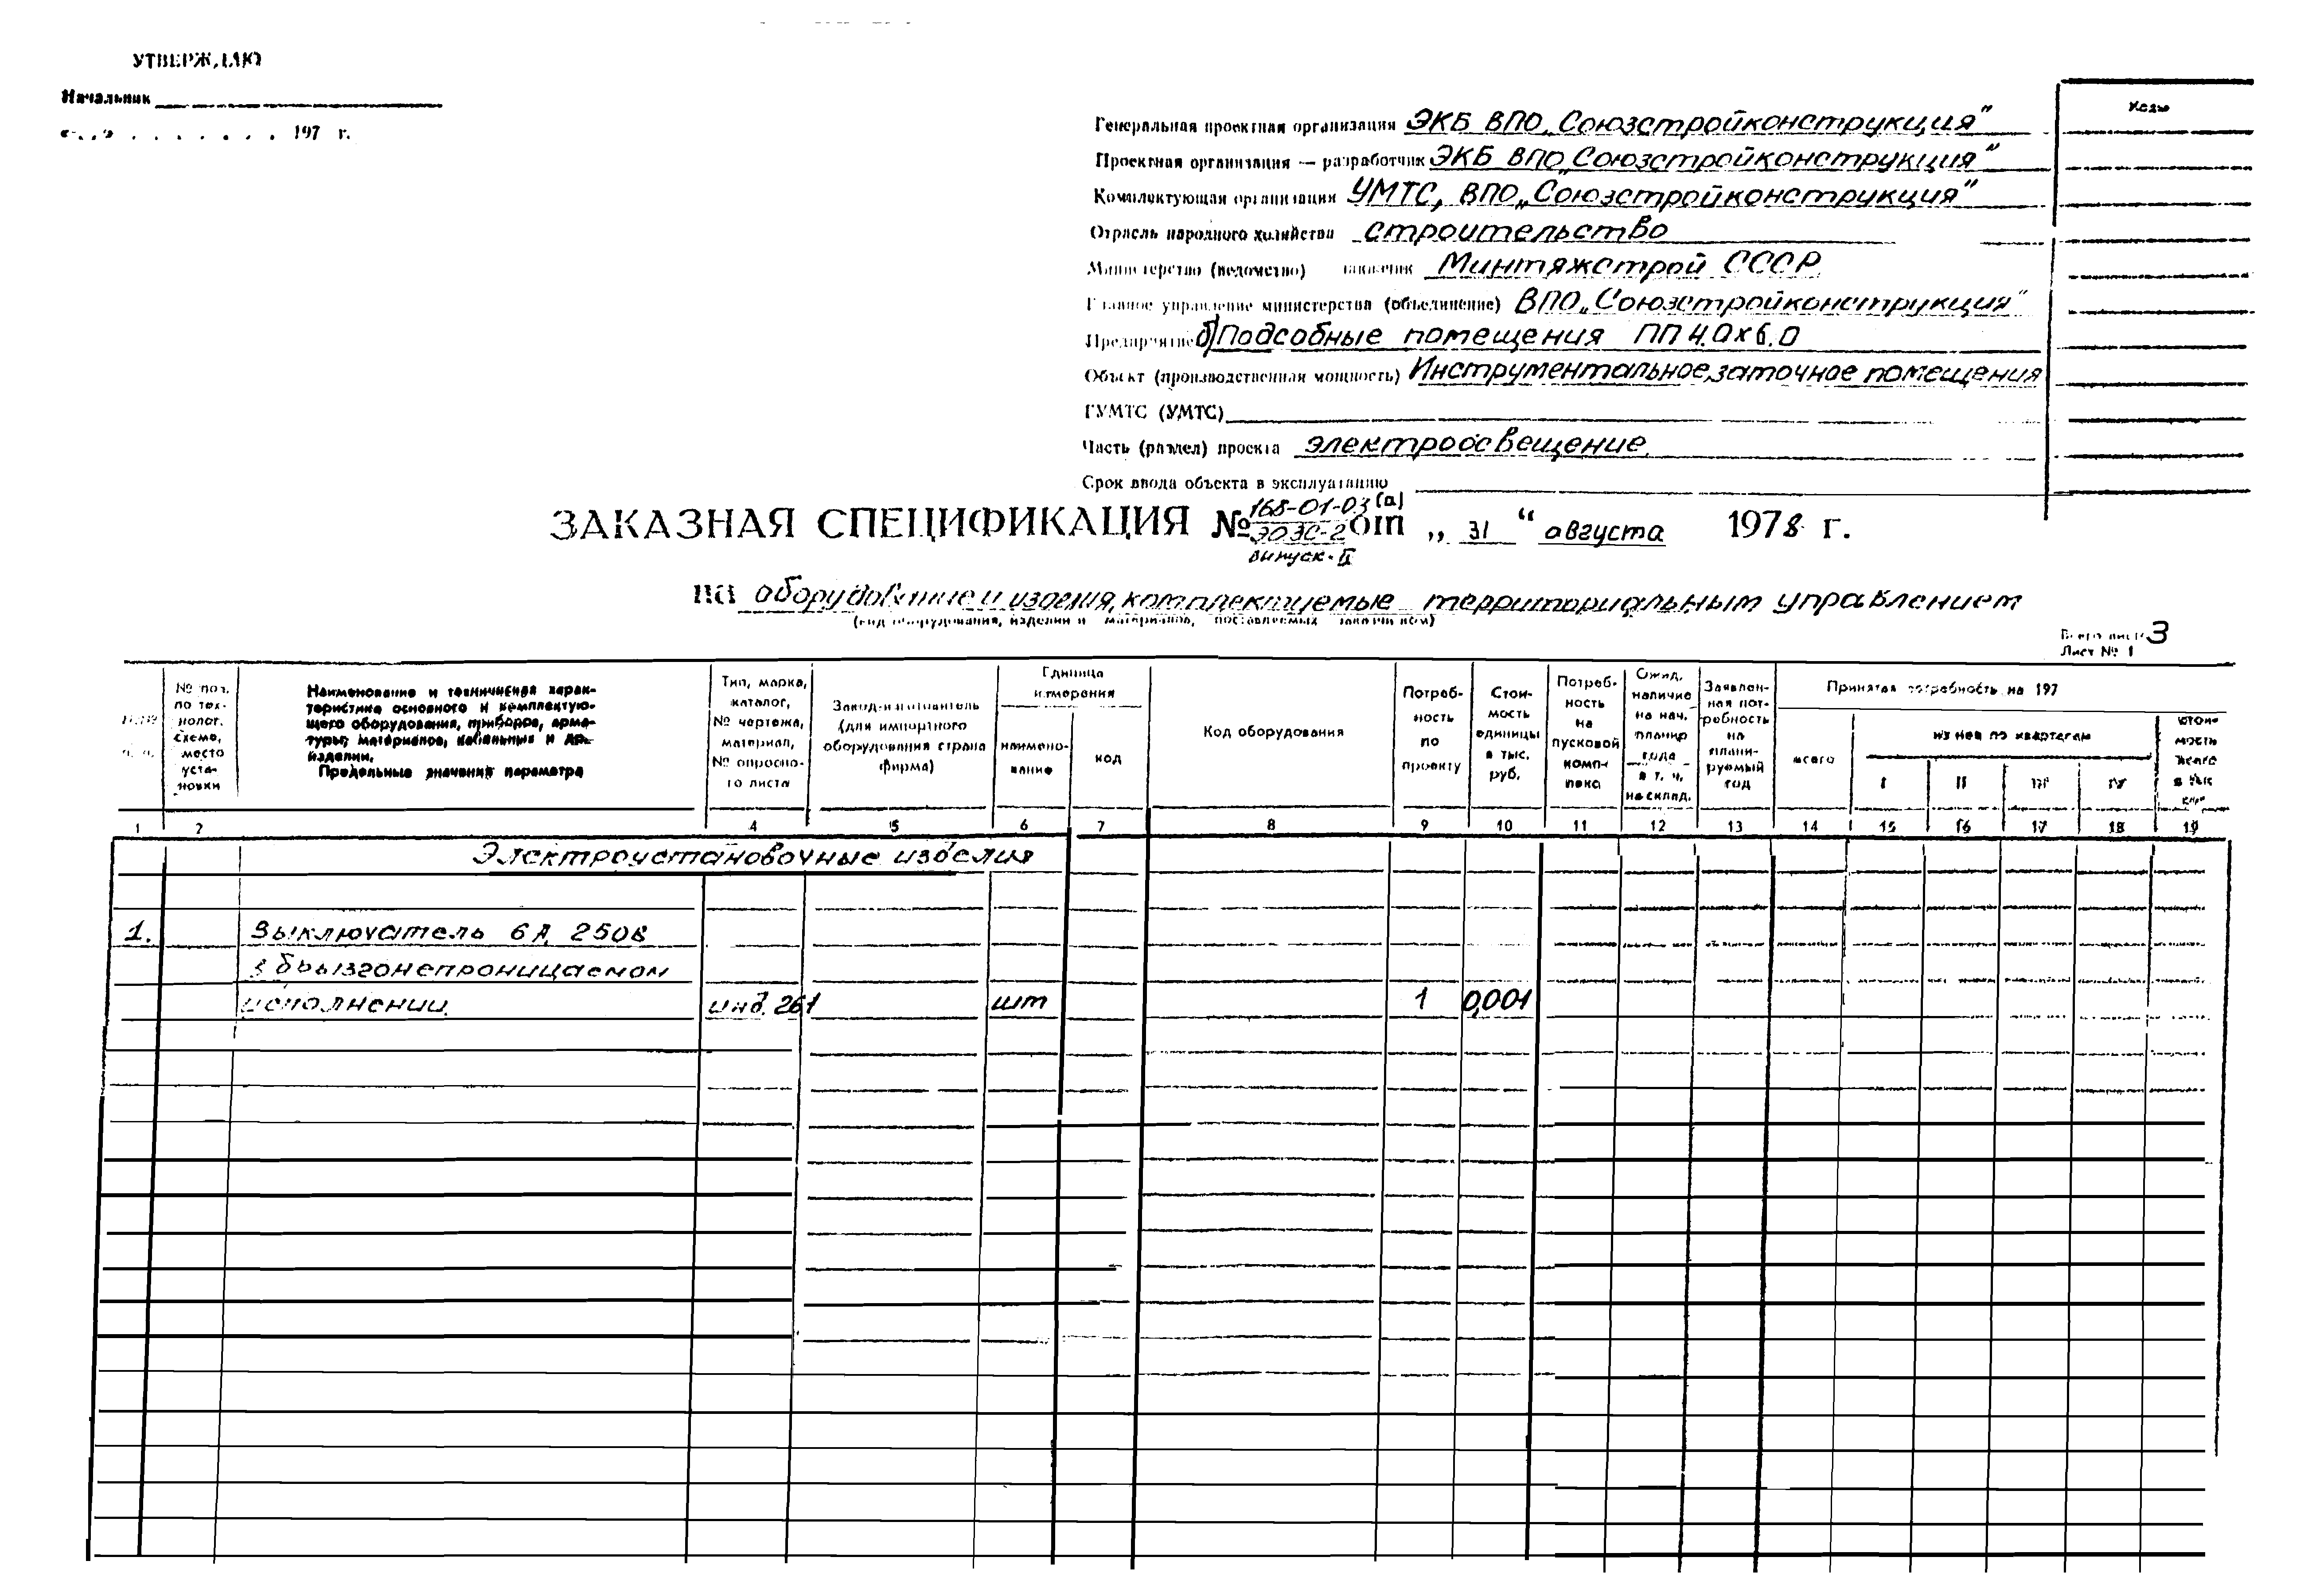 УТВЕРЖДАЮ
Начальник
197 г.
Коды
Генеральная проектная организация ЭКБ ВПО „Союзстройконструкция"
Проектная организация — разработчик ЭКБ ВПО „Союзстройконструкция"
Комплектующая организация УМТС, ВПО „Союзстройконструкция"
Отрасль народного хозяйства строительство
Министерство (ведомство) заказчик Минтяжстрой СССР
Главное управление министерства (объединение) ВПО „Союзстройконструкция"
Предприятие б) Подсобные помещения ПП 4.0х6.0
Объект (производственная мощность) Инструментальное, заточное помещения
ГУМТС (УМТС)
Часть (раздел) проекта электроосвещение
Срок ввода объекта в эксплуатацию
ЗАКАЗНАЯ СПЕЦИФИКАЦИЯ № 168-01-03 (а) ЭОЗС-2 выпуск-II от „ 31 " августа 1978 г.
на оборудование и изделия, комплектуемые территориальным управлением
(вид оборудования, изделий и материалов, поставляемых заказчиком)
Всего листо 3
Лист № 1
№ поз. по технолог. схеме, место установки
Наименование и техническая характеристика основного и комплектующего оборудования, приборов, арматуры, материалов, кабельных и др. изделий.
Предельные значения параметра
Тип, марка, каталог, № чертежа, материал, № опросного листа
Завод-изготовитель (для импортного оборудования страна фирма)
Единица измерения
наименование
код
Код оборудования
Потребность по проекту
Стоимость единицы в тыс. руб.
Потребность на пусковой комплекс
Ожид. наличие на нач. планир года в т. ч. на склад.
Заявленная потребность на планируемый год
Принятая потребность на 197
всего
из нее по кварталам
I II III IV
стоимость всего в тыс
1 2 4 5 6 7 8 9 10 11 12 13 14 15 16 17 18 19
Электроустановочные изделия
1. Выключатель 6А 250в
в брызгонепроницаемом
исполнении. инд. 261 шт 1 0,001